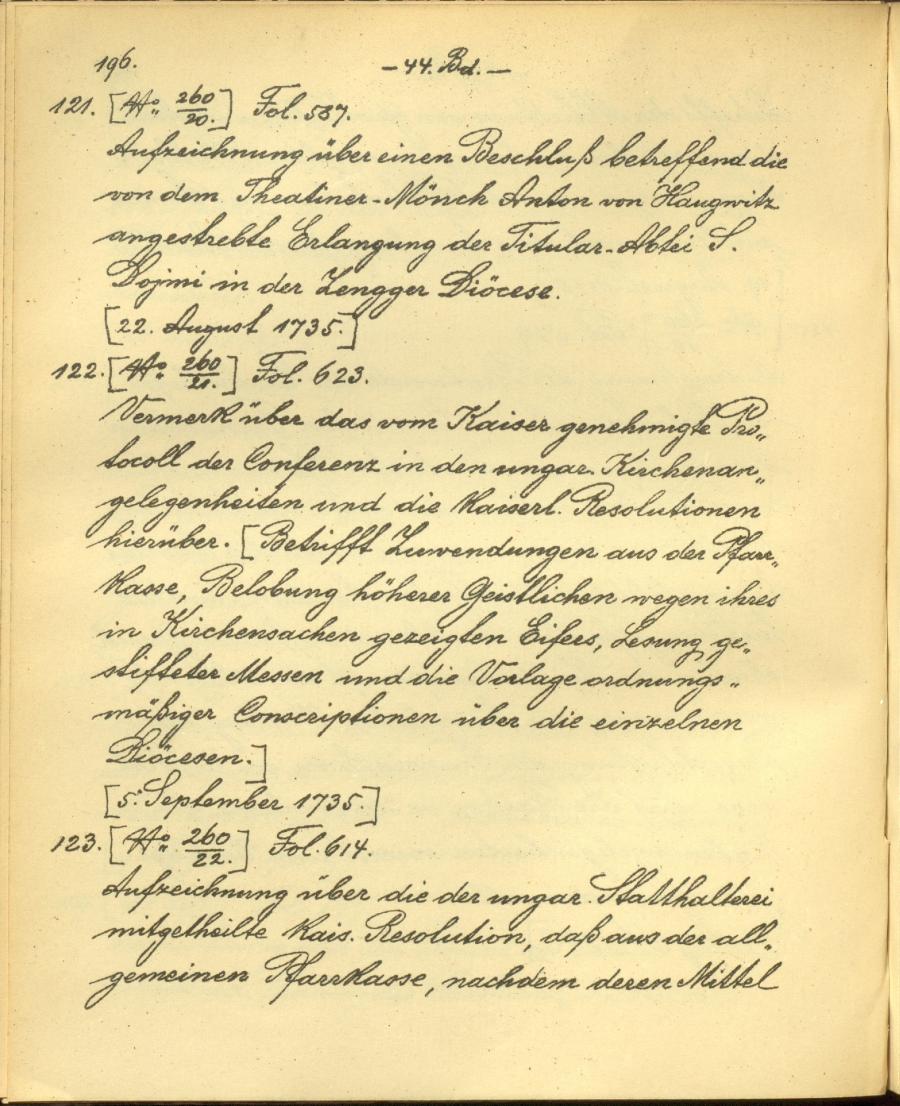 196.
- 44. Bd. -
121. [No. 260/20.] Fol. 587.
Aufzeichnung über einen Beschluß betreffend die
von dem Theatiner-Mönch Anton von Haugwitz
angestrebte Erlangung der Titular-Abtei S.
Dojmi in der Zengger Diöcese.
[22. August 1735.]
122. [No. 260/21.] Fol. 623.
Vermerk über das vom Kaiser genehmigte Pro„
tocoll der Conferenz in den ungar. Kirchenan„
gelegenheiten und die kaiserl. Resolutionen
hierüber. [Betrifft Zuwendungen aus der Pfarr„
kasse, Belobung höherer Geistlichen wegen ihres
in Kirchensachen gezeigten Eifers, Lesung ge„
stifteter Messen und die Vorlage ordnungs„
mäßiger Conscriptionen über die einzelnen
Diöcesen.]
[5. September 1735.]
123. [No. 260/22.] Fol. 614.
Aufzeichnung über die der ungar. Statthalterei
mitgetheilte kais. Resolution, daß aus der all„
gemeinen Pfarrkasse, nachdem deren Mittel